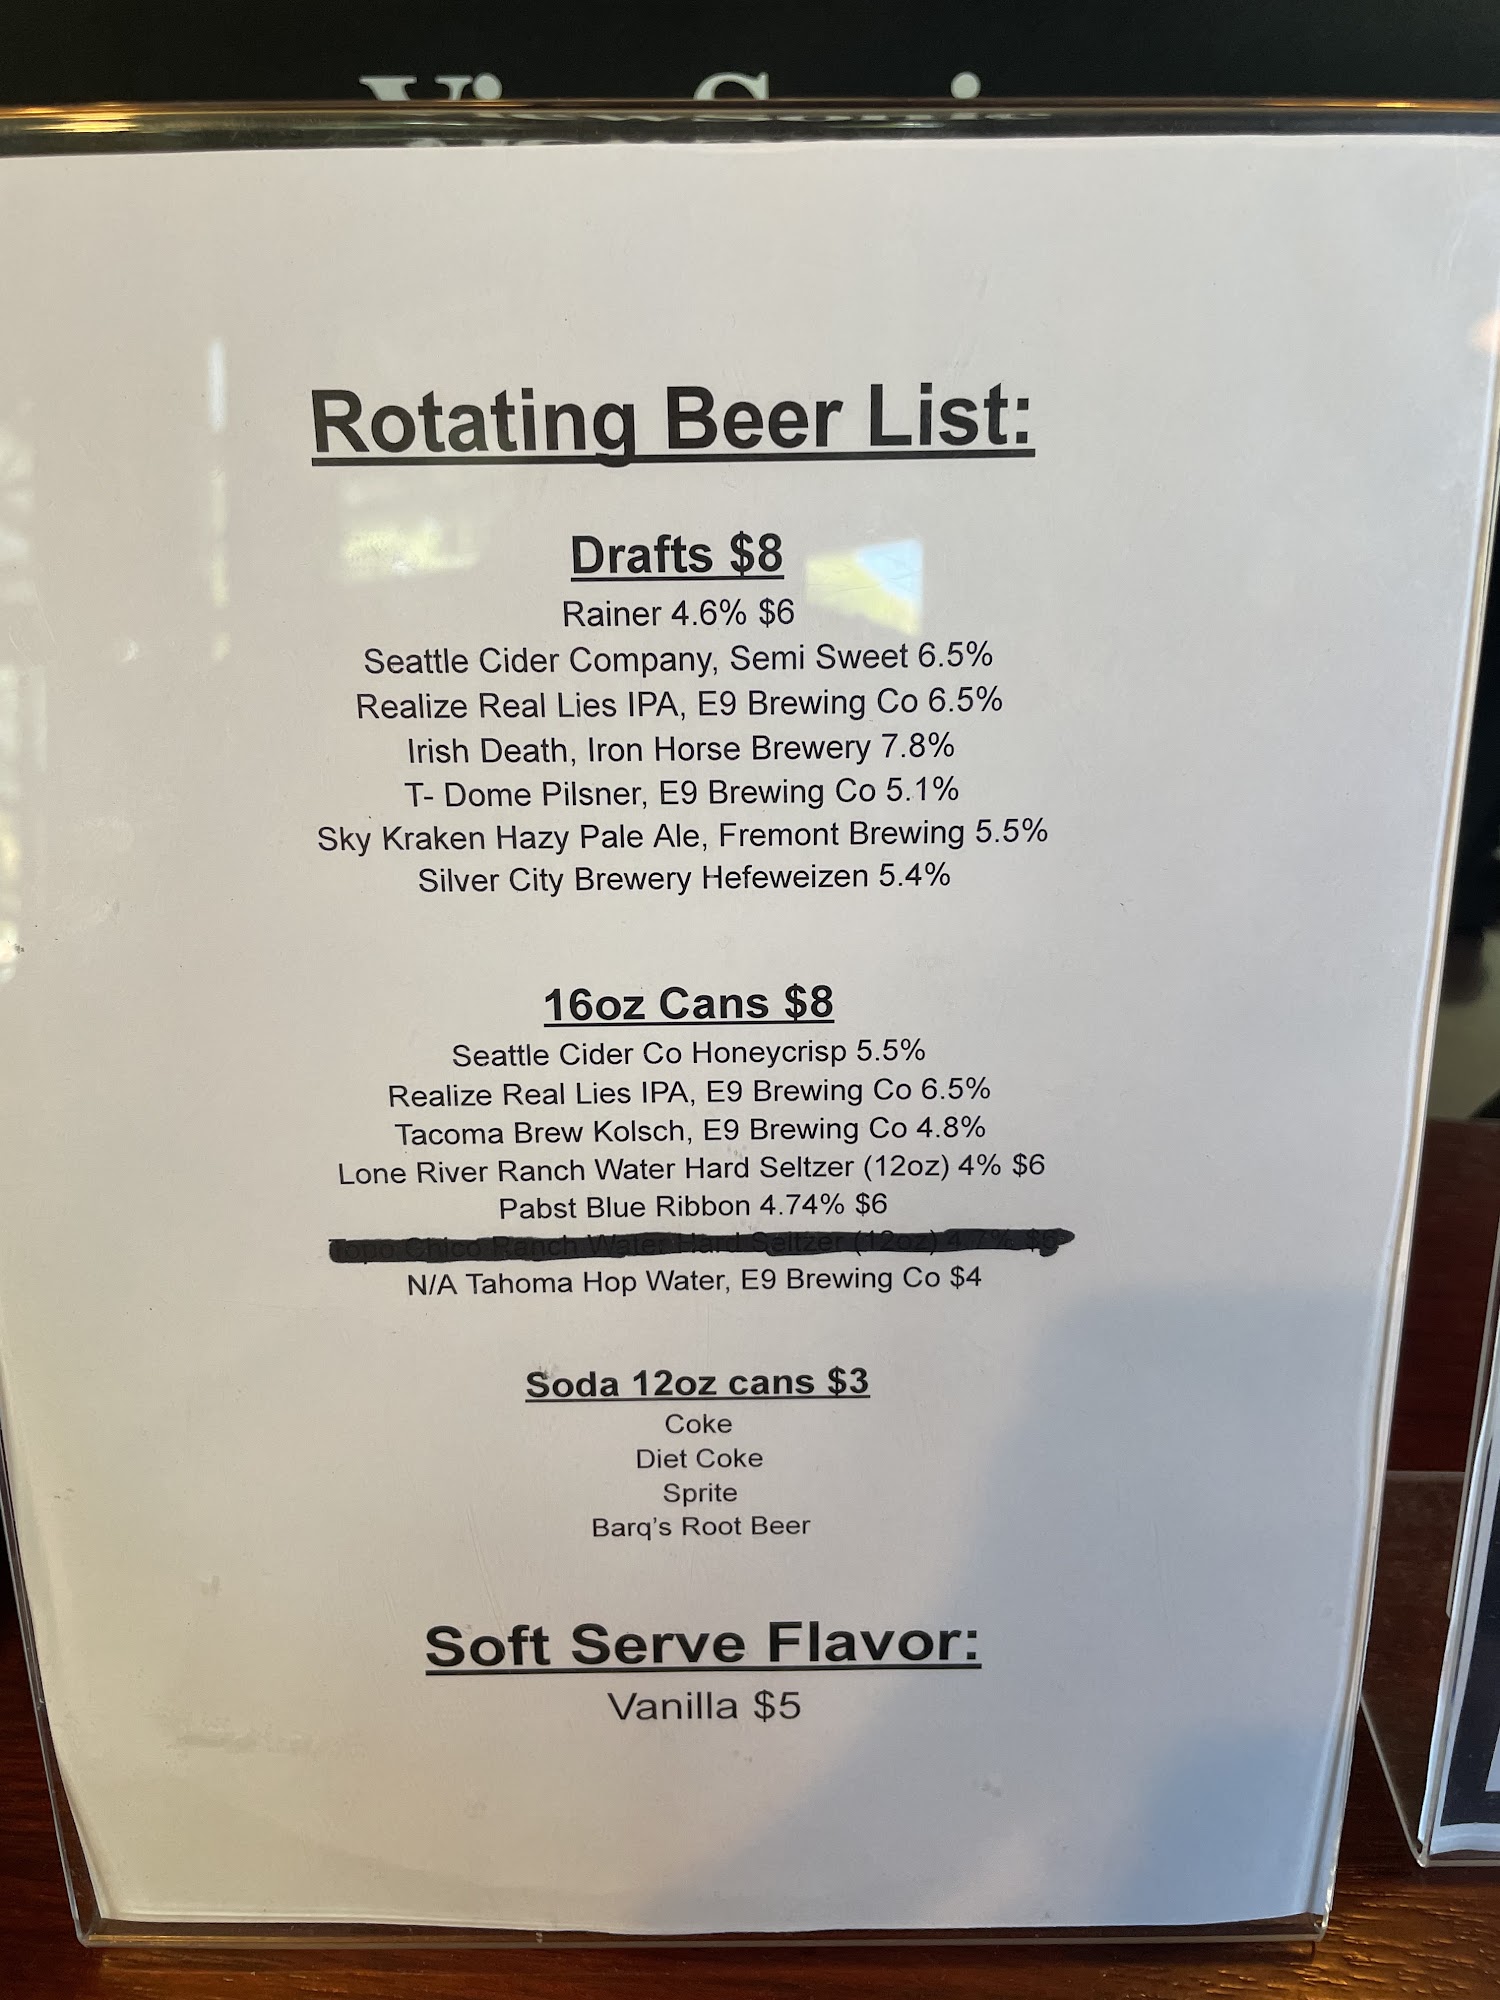 ViewSonic
Rotating Beer List:
Drafts $8
Rainer 4.6% $6
Seattle Cider Company, Semi Sweet 6.5%
Realize Real Lies IPA, E9 Brewing Co 6.5%
Irish Death, Iron Horse Brewery 7.8%
T- Dome Pilsner, E9 Brewing Co 5.1%
Sky Kraken Hazy Pale Ale, Fremont Brewing 5.5%
Silver City Brewery Hefeweizen 5.4%
16oz Cans $8
Seattle Cider Co Honeycrisp 5.5%
Realize Real Lies IPA, E9 Brewing Co 6.5%
Tacoma Brew Kolsch, E9 Brewing Co 4.8%
Lone River Ranch Water Hard Seltzer (12oz) 4% $6
Pabst Blue Ribbon 4.74% $6
Topo Chico Ranch Water Hard Seltzer (12oz) 4.7%
N/A Tahoma Hop Water, E9 Brewing Co $4
Soda 12oz cans $3
Coke
Diet Coke
Sprite
Barq's Root Beer
Soft Serve Flavor:
Vanilla $5